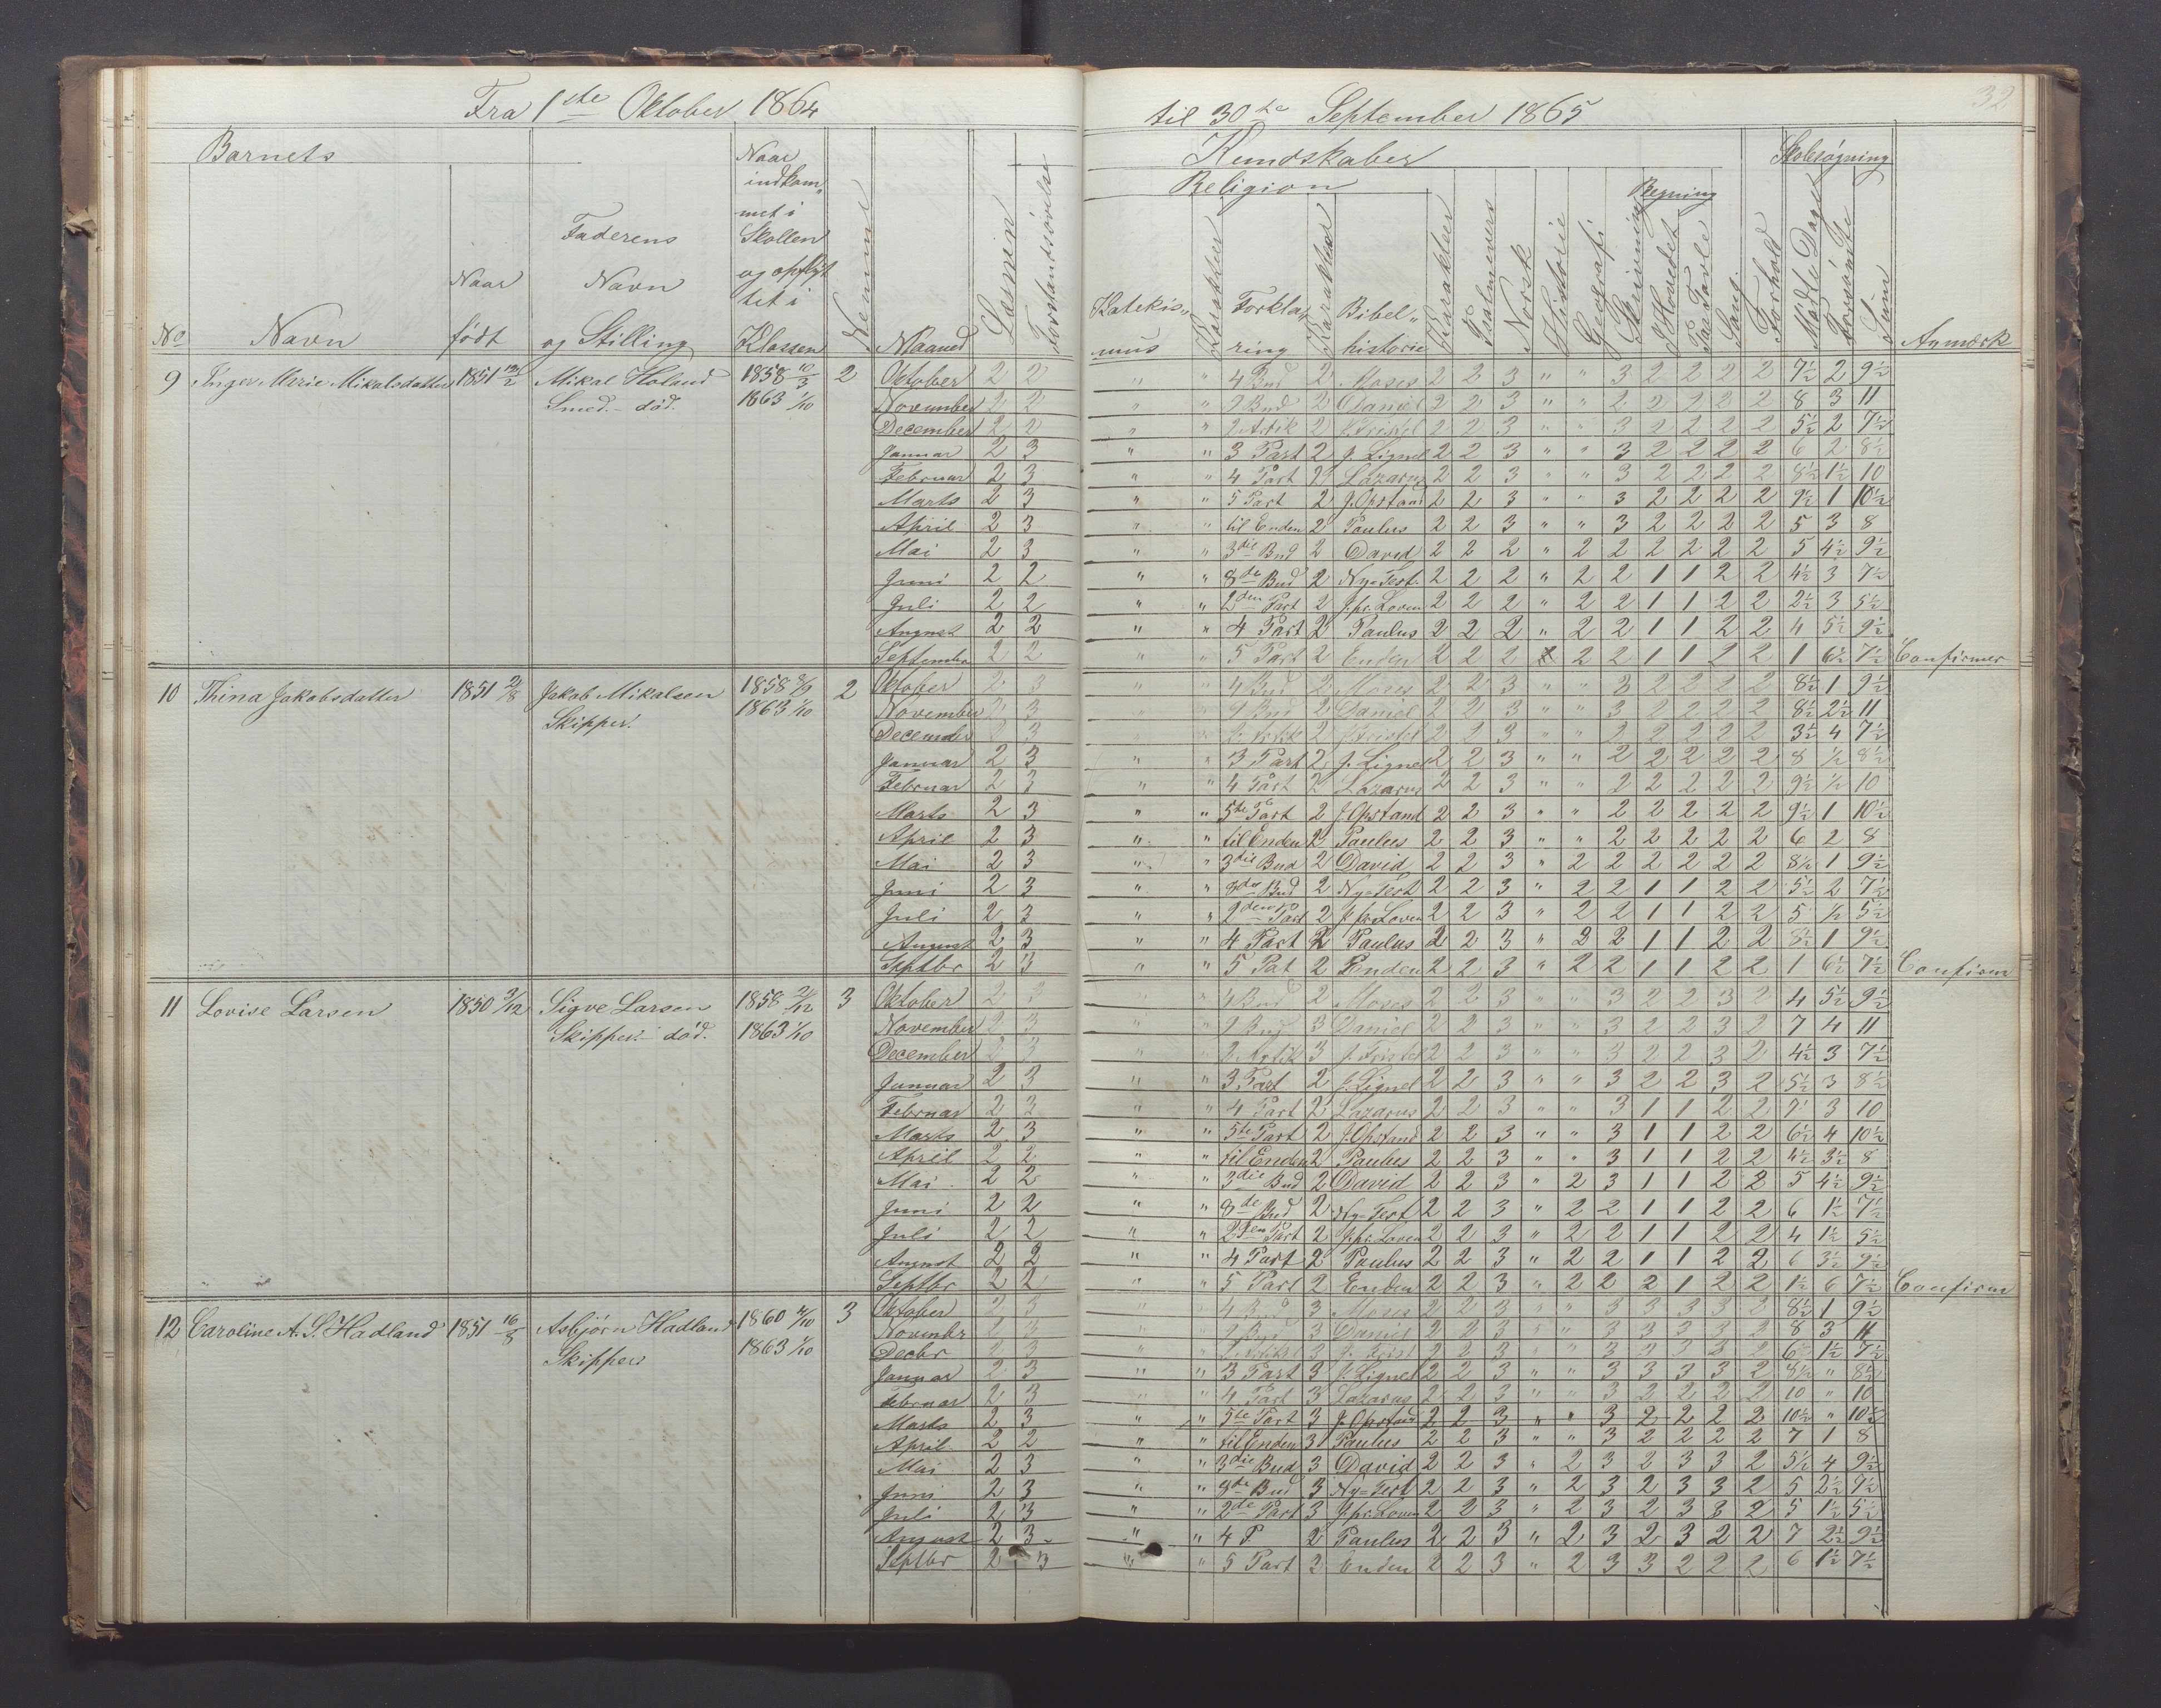 Fra 1ste Oktober 1864 til 30te September 1865
32
Barnets Kundskaber Skolesøgning
No Navn Naar født Faderens Navn og Stilling Naar indkommet i Skollen og opflyttet i Klassen Nemme Maaned Læsning Forstandsøvelse
Religion Regning
Katekismus Karakter Forklaring Karakter Bibelhistorie Karakter Psalmevers Norsk Historie Geografi Skrivning I Hovedet Paa Tavle Sang Forhold Mødte Dage Forsømte Sum Anmærk
9 Inger Marie Mikalsdatter 1851 Mikal Holand Smed. - død. 1858 10/3 1863 1/10 2
Oktober 2 2 " " 4 Bud 2 Moses 2 2 3 " " 3 2 2 2 2 7½ 2 9½
November 2 2 " " 9 Bud 2 Daniel 2 2 3 " " 2 2 2 2 2 8 3 11
December 2 2 " " 2 Artik 2 J. Fristel 2 2 3 " " 3 2 2 2 2 5½ 2 7½
Januar 2 3 " " 3 Part 2 J. Lignel 2 2 3 " " 3 2 2 2 2 6 2 8½
Februar 2 3 " " 4 Part 2 Lazarus 2 2 3 " " 3 2 2 2 2 8½ 1½ 10
Marts 2 3 " " 5 Part 2 J. Opstand 2 2 3 " " 3 2 2 2 2 9½ 1 10½
April 2 3 " " til Enden 2 Paulus 2 2 3 " " 3 2 2 2 2 5 3 8
Mai 2 3 " " 3die Bud 2 David 2 2 2 " 2 2 2 2 2 2 5 4½ 9½
Juni 2 2 " " 8de Bud 2 Ny=Test. 2 2 2 " 2 2 1 1 2 2 4½ 3 7½
Juli 2 2 " " 2den Part 2 J. pr. Loven 2 2 2 " 2 2 1 1 2 2 2½ 3 5½
August 2 2 " " 4 Part 2 Paulus 2 2 2 " 2 2 1 1 2 2 4 5½ 9½
September 2 2 " " 5 Part 2 Enden 2 2 2 2 2 1 1 2 2 1 6½ 7½ Confirmer
10 Thina Jakobsdatter 1851 2/8 Jakob Mikalsen Skipper. 1858 8/9 1863 1/10 2
Oktober 2 3 " " 4 Bud 2 Moses 2 2 3 " " 3 2 2 2 2 8½ 1 9½
November 2 3 " " 9 Bud 2 Daniel 2 2 3 " " 3 2 2 2 2 8½ 2½ 11
December 2 3 " " 2 Artik 2 J. Fristel 2 2 3 " " 2 2 2 2 2 3½ 4 7½
Januar 2 3 " " 3 Part 2 J. Lignel 2 2 3 " " 2 2 2 2 2 8 ½ 8½
Februar 2 3 " " 4 Part 2 Lazarus 2 2 3 " " 2 2 2 2 2 9½ ½ 10
Marts 2 3 " " 5te Part 2 J. Opstand 2 2 3 " " 2 2 2 2 2 9½ 1 10½
April 2 3 " " til Enden 2 Paulus 2 2 3 " " 2 2 2 2 2 6 2 8
Mai 2 3 " " 3die Bud 2 David 2 2 3 " 2 2 2 2 2 2 8½ 1 9½
Juni 2 3 " " 8de Bud 2 Ny=Test 2 2 3 " 2 2 1 1 2 2 5½ 2 7½
Juli 2 3 " " 2den Part 2 J. pr. Loven 2 2 3 " 2 2 1 1 2 2 5 ½ 5½
August 2 3 " " 4 Part 2 Paulus 2 2 3 " 2 2 1 1 2 2 8½ 1 9½
Septbr 2 3 " " 5 Pat 2 Enden 2 2 3 " 2 2 1 1 2 2 1 6½ 7½ Confirm
11 Lovise Larsen 1850 3/12 Sigve Larsen Skipper. - død. 1858 1863 1/10 3
Oktober 2 3 " " 4 Bud 2 Moses 2 2 3 " " 3 2 2 3 2 4 5½ 9½
November 2 3 " " 9 Bud 3 Daniel 2 2 3 " " 3 2 2 3 2 7 4 11
December 2 3 " " 2 Artik 3 J. Fristel 2 2 3 " " 3 2 2 3 2 4½ 3 7½
Januar 2 3 " " 3 Part 2 J. Lignel 2 2 3 " " 3 2 2 3 2 5½ 3 8½
Februar 2 3 " " 4 Part 2 Lazarus 2 2 3 " " 3 1 1 2 2 7 3 10
Marts 2 3 " " 5te Part 2 J. Opstand 2 2 3 " " 3 1 1 2 2 6½ 4 10½
April 2 2 " " til Enden 2 Paulus 2 2 3 " " 3 1 1 2 2 4½ 3½ 8
Mai 2 2 " " 3die Bud 2 David 2 2 3 " 2 3 1 1 2 2 5 4½ 9½
Juni 2 2 " " 8de Bud 2 Ny=Test 2 2 3 " 2 2 1 1 2 2 6 1½ 7½
Juli 2 2 " " 2den Part 2 J. pr. Loven 2 2 3 " 2 2 1 1 2 2 4 1½ 5½
August 2 2 " " 4 Part 2 Paulus 2 2 3 " 2 2 1 1 2 2 6 3½ 9½
Septbr 2 2 " " 5 Part 2 Enden 2 2 3 " 2 2 2 1 2 2 1½ 6 7½ Confirm
12 Caroline A. S. Hadland 1851 16/8 Asbjørn Hadland Skipper 1860 1863 1/10 3
Oktober 2 3 " " 4 Bud 3 Moses 2 2 3 " " 3 3 3 3 2 8½ 1 9½
Novembr 2 3 " " 9 Bud 3 Daniel 2 2 3 " " 3 3 3 3 2 8 3 11
Decbr 2 3 " " 2 Artikl 3 J. Frist 2 2 3 " " 3 3 3 3 2 6 1½ 7½
Januar 2 3 " " 3 Part 3 J. Lignel 2 2 3 " " 3 3 3 3 2 8½ " 8½
Februar 2 3 " " 4 Part 3 Lazarus 2 2 3 " " 3 2 2 2 2 10 " 10
Marts 2 3 " " 5te Part 3 J. Opstand 2 2 3 " " 3 2 2 2 2 10½ " 10½
April 2 2 " " til Enden 3 Paulus 2 2 3 " " 3 2 2 2 2 7 1 8
Mai 2 3 " " 3die Bud 3 David 2 2 3 " 2 3 2 3 3 2 5½ 4 9½
Juni 2 3 " " 8de Bud 3 Ny=Test 2 2 3 " 2 3 2 3 3 2 5 2½ 7½
Juli 2 3 " " 2de Part 3 J. pr. Loven 2 2 3 " 2 3 2 3 3 2 5 1½ 5½
August 2 3 " " 4 P 2 Paulus 2 2 3 " 2 3 2 3 2 2 7 2½ 9½
Septbr 2 3 " " 5 Part 2 Enden 2 2 3 " 2 3 3 2 2 2 6 1½ 7½